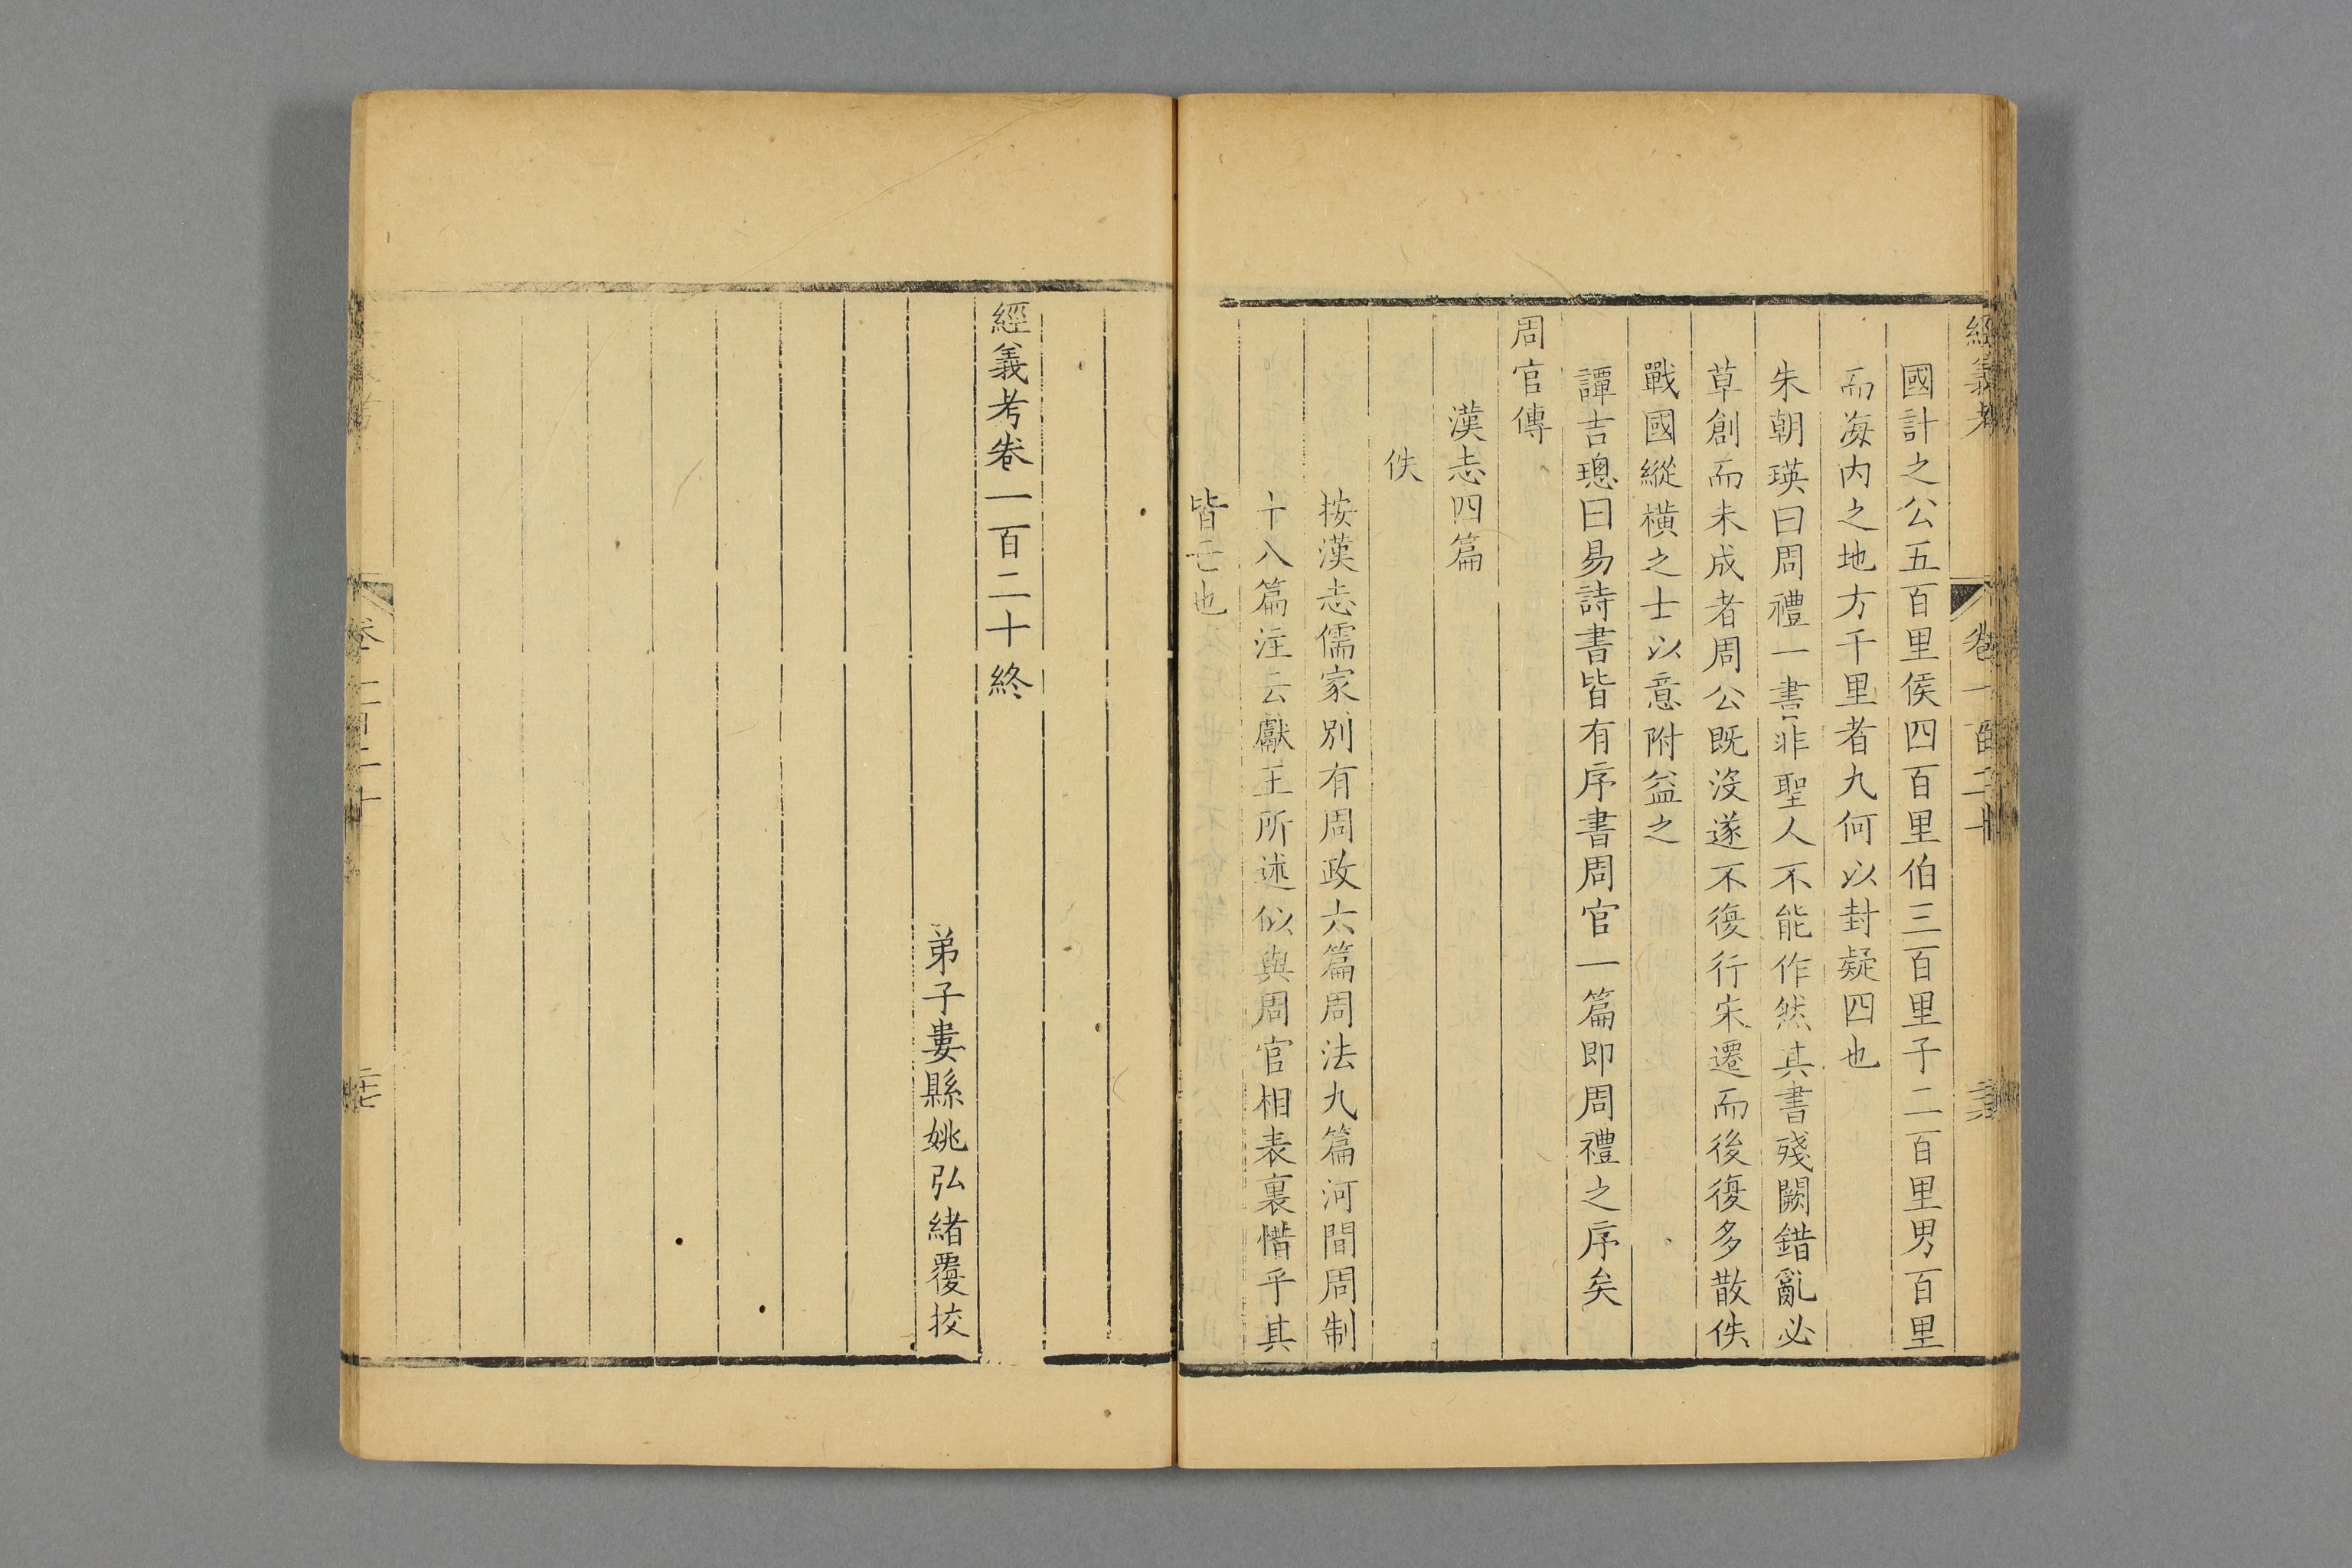 經義考
卷一百二十
國計之公五百里侯四百里伯三百里子二百里男百里
而海内之地方千里者九何以封疑四也
朱朝瑛曰周禮一書非聖人不能作然其書殘闕錯亂必
草創而未成者周公既没遂不復行宋遷而後復多散佚
戰國縱橫之士以意附益之
譚吉璁曰易詩書皆有序書周官一篇即周禮之序矣
周官傳
漢志四篇
佚
按漢志儒家別有周政六篇周法九篇河間周制
十八篇注云獻王所述似與周官相表裏惜乎其
皆亡也
經義考卷一百二十終
弟子婁縣姚弘緒覆挍
卷一百二十
二十七